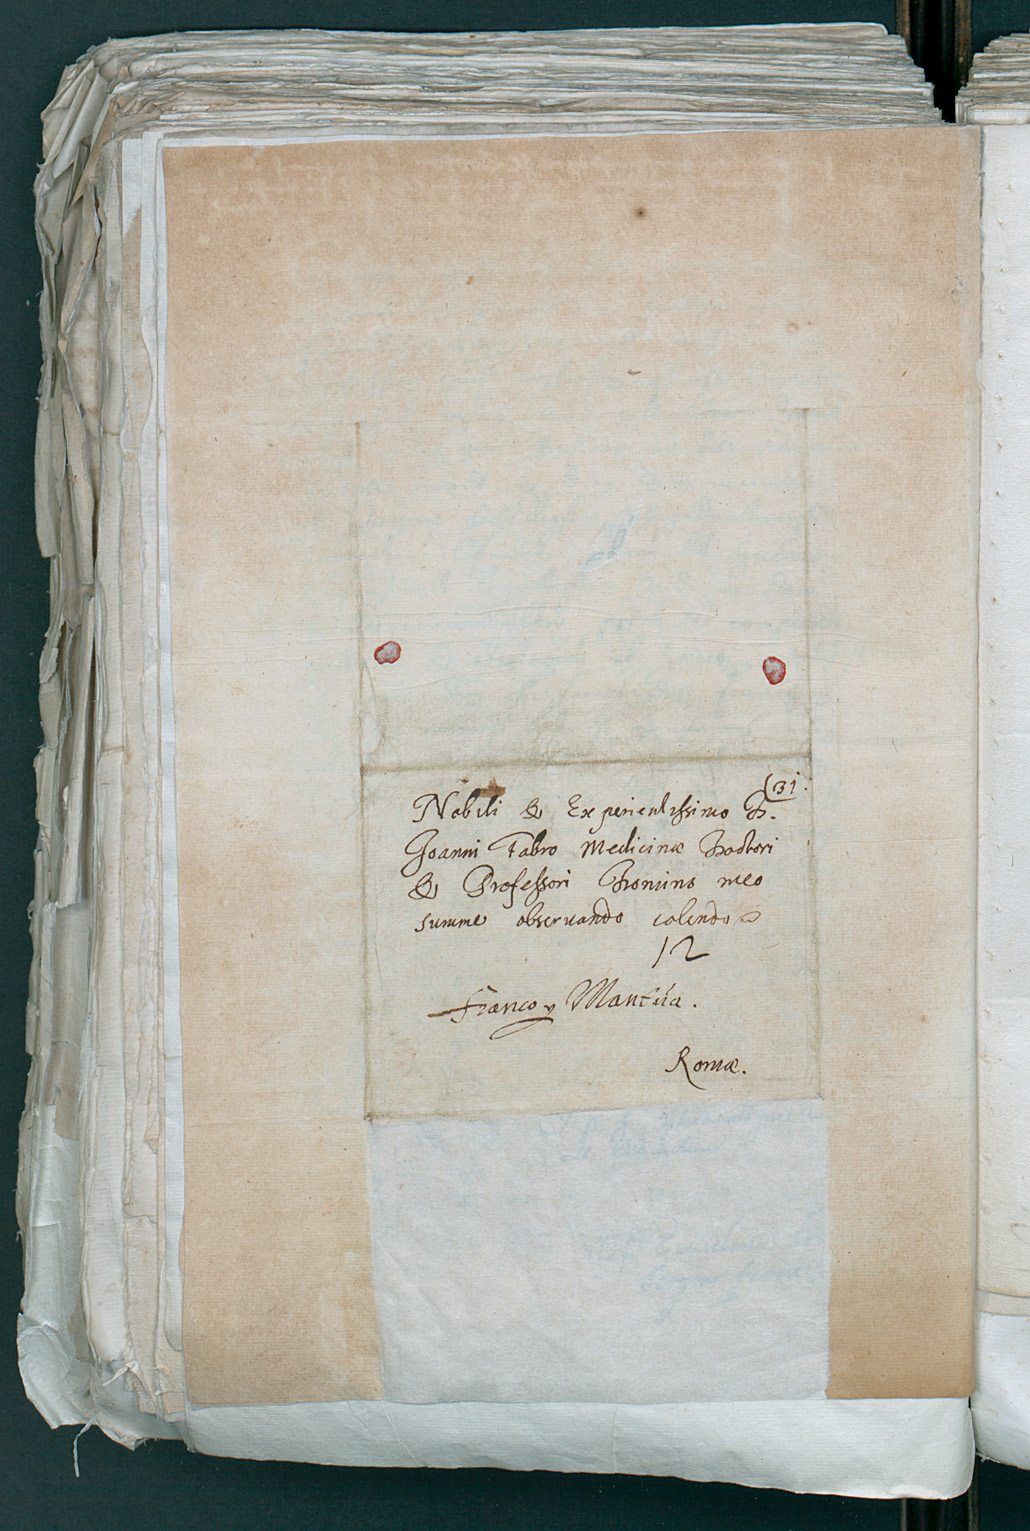 (31.
Nobili & Experientissimo D.
Joanni Fabro Medicinæ Doctori
& Professori Domino meo
summe obseruando colendo
12
Franco p Mantúa.
Romæ.